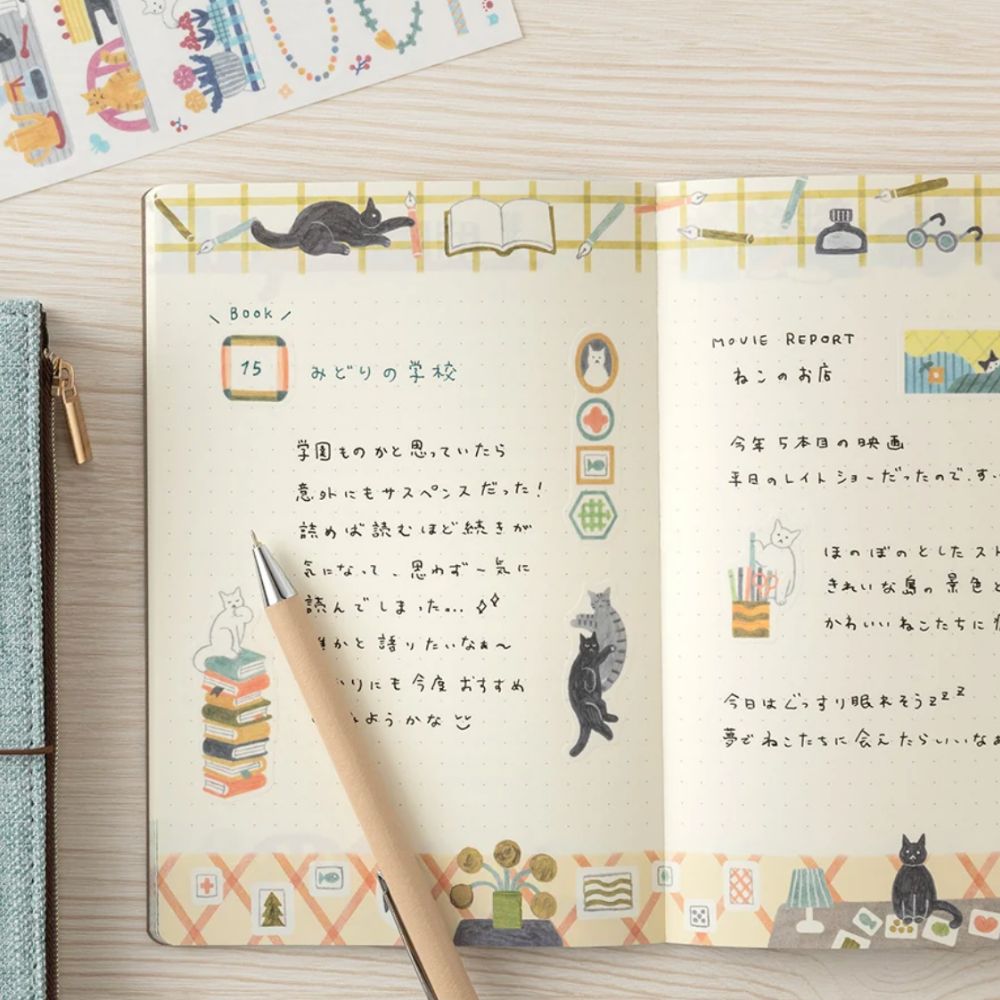 Book
15
みどりの学校
学園ものかと思っていたら
意外にもサスペンスだった!
読めば読むほど続きが
気になって、思わず一気に
読んでしまった…
かと語りたいなぁ〜
りにも今度おすすめ
ようかな
MOVIE REPORT
ねこのお店
今年5本目の映画
平日のレイトショーだったので、す
ほのぼのとしたス
きれいな島の景色と
かわいいねこたちに
今日はぐっすり眠れそうzzz
夢でねこたちに会えたらいいなぁ